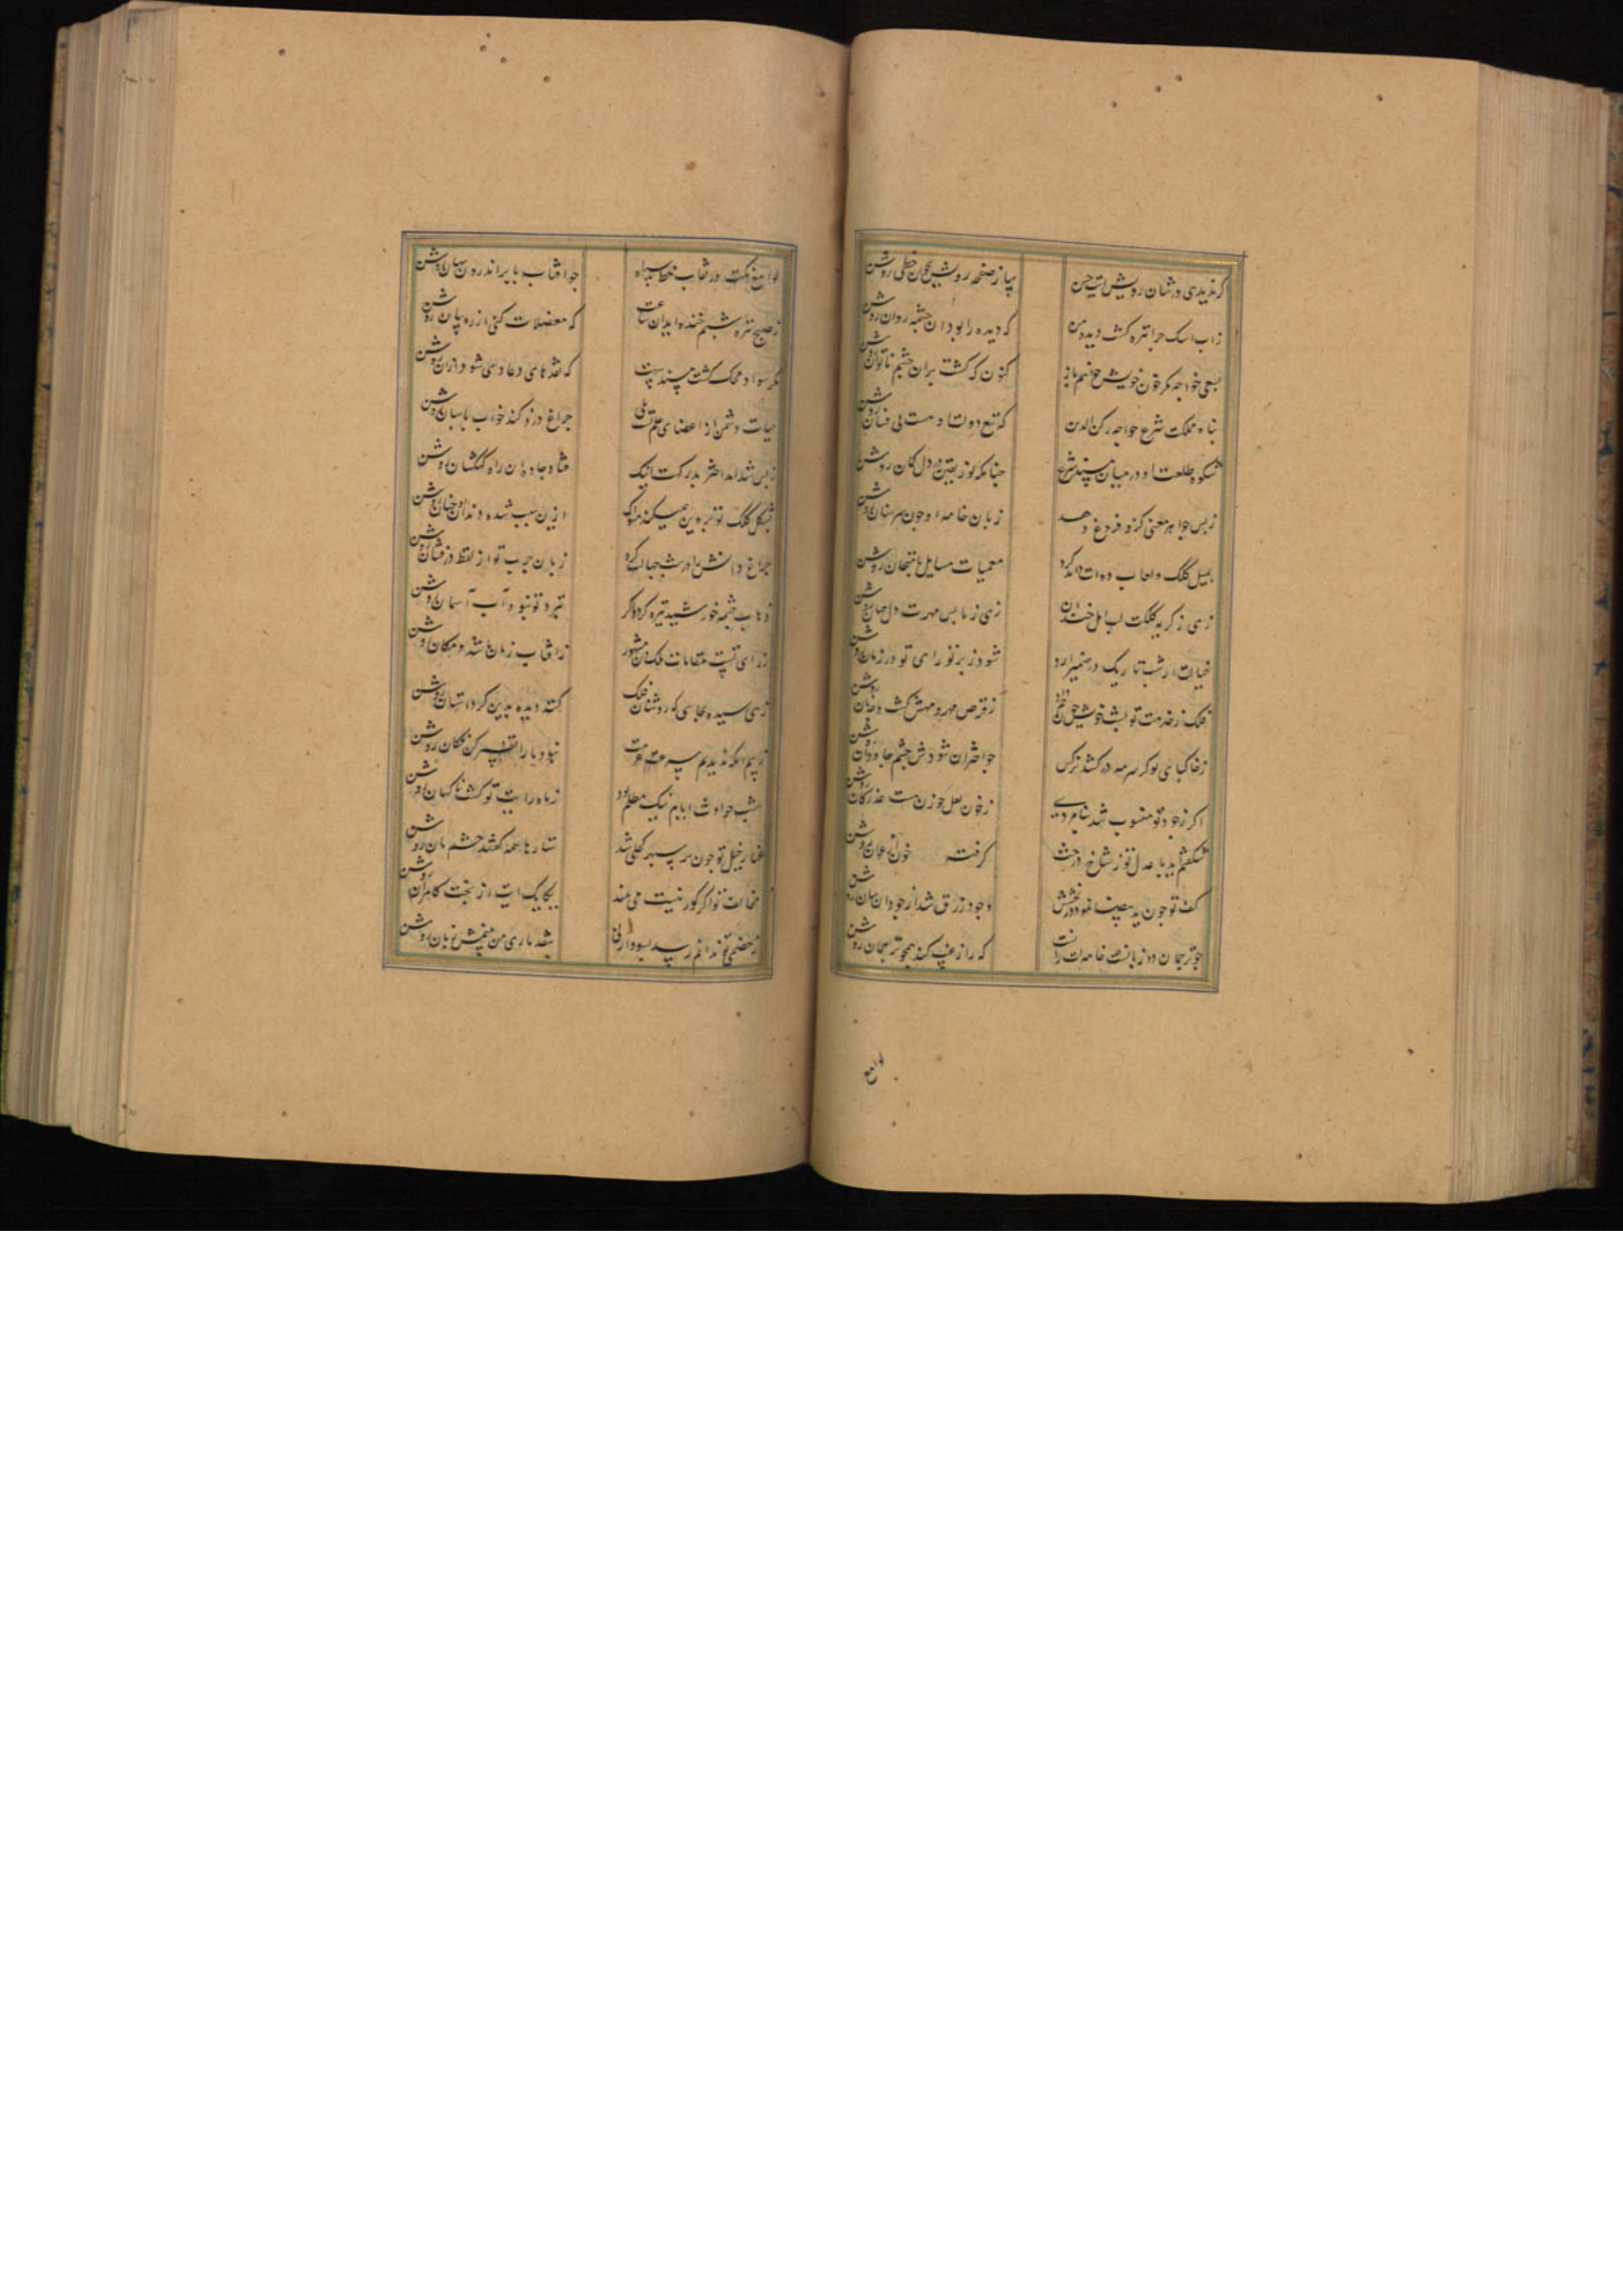 کر ندیدی در شان رویش ایت حسن
بیا ز صفحه رویش بخوان خطی روشن
ز اب اشک چرا تیره کشت دیده من
که دیده را بود از چشمه روان روشن
بسعی خواجه مکر خون خویش خواهم باز
کنون که کشت بران چشم ناتوان روشن
پناه مملکت شرع خواجه رکن الدین
که شمع دولت او هست بی فسان روشن
شکوه طلعت او در میان مسند شرع
چنانکه نور یقین در دل کان روشن
ز بس جواهر معنی کزو فروغ دهد
زبان خامه او چون سر سنان روشن
بمیل کلک و لعاب دوات داند کرد
معمیات مسایل بامتحان روشن
زهی ز کریه کلکت لب امل خندان
زهی ز مابس مهرت دل جهان روشن
خیالت ار شب تاریک در ضمیر ارد
شود ز پرتو رای تو در زمان روشن
فلک ز خدمت تو پشت خویش چون خم داد
ز قرص مهر و مهش کشت دو نان روشن
ز خاک پای تو کر سرمه در کشد نرکس
چو اختران شودش چشم جاودان روشن
اکر ز جود تو منسوب شد بنامردی
ز خون لعل چو زن هست عذر کان روشن
شکفتم اید با عدل تو ز شاخ درخت
کرفته خون روشن
کف تو چون ید بیضا نمود در بخشش
وجود رزق شد از جود ان بنان روشن
چو ترجمان دو زبانست خامه ات زانست
که راز غیب کند همچو ترجمان روشن
لوامع
لوامع نکت در نقاب خط سیاه
چو افتاب بابر اندرون نهان روشن
ز صبح تیره شبم خنده اید ان ساعت
که معضلات کنی از ره بیان روشن
مکر سواد محک کشت مسند تست
که نقدهای دعاوی شود ازان روشن
حیات دشمن از اعضای
چراغ دزد کند خواب پاسبان روشن
ز بس شد امد اختر بدرکهت اینک
فتاد جاده ان راه کهکشان روشن
بشکل کلک تو پروین همیکند مسواک
ازین سبب شده دندان او چنان روشن
چراغ دانش را در شب جهالت کرد
زبان چرب تو از لفظ درفشان روشن
ذهاب چشمه خورشید تیره کردد کر
تیره تو نبود اب اسمان روشن
ز رای تست مقامات ملک و دین مشهور
ز افتاب زمان شد و مکان روشن
زهی رسیده بجایی که روشنان فلک
کنند دیده بدین کرد استان روشن
ندیدیم سرعت عزمت
نبود ما را تفسیر کن فکان روشن
شب حوادث ایام نیک مظلم بود
ز ماه رایت تو کشت ناکهان روشن
غبار خیل تو چون بر سپهر کحلی شد
ستارها همه کفتند چشم مان روشن
مخالفت تو اکر کور نیست می بیند
یکایک ایت از بخت کامران روشن
ز خصمی تو ندانم رسید سود او را